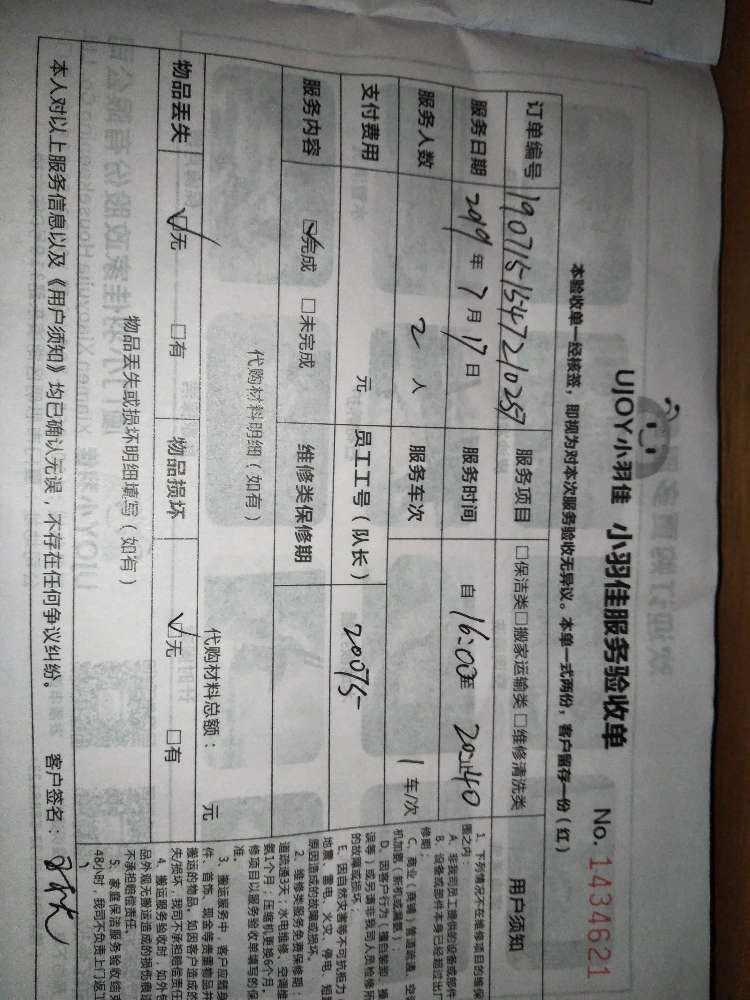 UJOY小羽佳 小羽佳服务验收单 No. 1434621
本验收单一经核签，即视为对本次服务验收无异议。本单一式两份，客户留存一份（红）
订单编号 190715154721025 服务项目 □保洁类□搬家运输类□维修清洗类 用户须知
服务日期 2019年7月17日 服务时间 自16:00至20:40止
服务人数 2人 服务车次 1车/次
支付费用 元 员工工号（队长） 20075
服务内容 ☑完成 □未完成 维修类保修期
代购材料明细（如有）
代购材料总额： 元
物品丢失 ☑无 □有 物品损坏 ☑无 □有
物品丢失或损坏明细填写（如有）
本人对以上服务信息以及《用户须知》均已确认无误，不存在任何争议纠纷。 客户签名：
1. 下列情况不在维修项目的维保
围之内：
A. 非我司员工提供的设备或部件
B. 设备或部件本身已经超过出厂
修期；
C. 商业（商铺）管道疏通，空
机加氨（新机或漏氨）；
D. 因客户行为（擅自装卸、操
误等）或另请非我司人员检修所
的故障或损坏；
E. 因自然灾害等不可抗力
地震、雷电、火灾、停电、短
原因造成的故障或损坏。
2. 维修类服务免费保修期：
道疏通3天；水电维修、空调维
氨1个月；压缩机更换6个月。
修项目以服务验收单填写的保
准。
3. 搬运服务中，客户应随身
件、首饰、现金等贵重物品并
搬运的物品。如因客户造成的
失/损坏，我司不承担赔偿责任
4. 搬运服务验收时，如外包
品外观无搬运造成的损伤痕迹
不承担赔偿责任。
5. 家庭保洁服务验收结束
48小时，我司不负责上门返工